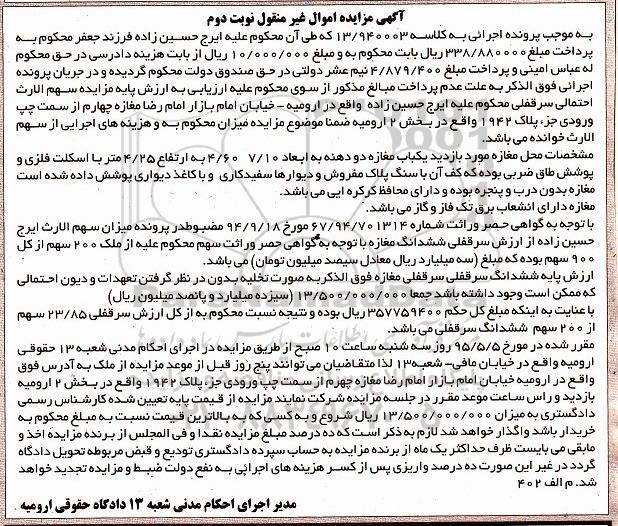 آگهی مزایده اموال غیر منقول نوبت دوم
به موجب پرونده اجرائی به کلاسه ۱۳/۹۴۰۰۰۳ که طی آن محکوم علیه ایرج حسین زاده فرزند جعفر محکوم به
پرداخت مبلغ ۳۳۸/۸۸۰۰۰۰ ریال بابت محکوم به و مبلغ ۱۰/۰۰۰/۰۰۰ ریال از بابت هزینه دادرسی در حق محکوم
له عباس امینی و پرداخت مبلغ ۴/۸۷۹/۴۰۰ نیم عشر دولتی در حق صندوق دولت محکوم گردیده و در جریان پرونده
اجرائی فوق الذکر به علت عدم پرداخت مبالغ مذکور از سوی محکوم علیه ارزیابی به ارزش پایه مزایده سهم الارث
احتمالی سرقفلی محکوم علیه ایرج حسین زاده واقع در ارومیه - خیابان امام بازار امام رضا مغازه چهارم از سمت چپ
ورودی جزء پلاک ۱۹۴۲ واقع در بخش ۲ ارومیه ضمنا موضوع مزایده میزان محکوم به و هزینه های اجرایی از سهم
الارث خوانده می باشد.
مشخصات محل مغازه مورد بازدید یکباب مغازه دو دهنه به ابعاد ۷/۱۰ ۴/۶۰ به ارتفاع ۴/۲۵ متر با اسکلت فلزی و
پوشش طاق ضربی بوده که کف آن با سنگ پلاک مفروش و دیوارها سفیدکاری و با کاغذ دیواری پوشش داده شده است
مغازه بدون درب و پنجره بوده و دارای محافظ کرکره ایی می باشد.
مغازه دارای انشعاب برق تک فاز و گاز می باشد.
با توجه به گواهی حصر وراثت شماره ۶۷/۹۴/۷۰۱۳۱۴ مورخ ۹۴/۹/۱۸ مضبوط در پرونده میزان سهم الارث ایرج
حسین زاده از ارزش سرقفلی ششدانگ مغازه با توجه به گواهی حصر وراثت سهم محکوم علیه از ملک ۲۰۰ سهم از کل
۹۰۰ سهم بوده که مبلغ (سه میلیارد ریال معادل سیصد میلیون تومان) می باشد.
ارزش پایه ششدانگ سرقفلی سرقفلی مغازه فوق الذکر به صورت تخلیه بدون در نظر گرفتن تعهدات و دیون احتمالی
که ممکن است وجود داشته باشد جمعا ۱۳/۵۰۰/۰۰۰/۰۰۰ (سیزده میلیارد و پانصد میلیون ریال)
با عنایت به اینکه مبلغ کل حکم ۳۵۷۷۵۹۴۰۰ ریال بوده و نتیجه نسبت محکوم به از کل ارزش سرقفلی ۲۳/۸۵ سهم
از ۲۰۰ سهم ششدانگ سرقفلی می باشد.
مقرر شده در مورخ ۹۵/۵/۵ روز سه شنبه ساعت ۱۰ صبح از طریق مزایده در اجرای احکام مدنی شعبه ۱۳ حقوقی
ارومیه واقع در خیابان مافی شعبه ۱۳ لذا متقاضیان می توانند پنج روز قبل از موعد مزایده از ملک به آدرس فوق
واقع در ارومیه خیابان امام بازار امام رضا مغازه چهرم از سمت چپ ورودی جزء پلاک ۱۹۴۲ واقع در بخش ۲ ارومیه
بازدید و راس ساعت موعد مقرر در جلسه مزایده شرکت نمایند مزایده از قیمت پایه تعیین شده کارشناس رسمی
دادگستری به میزان ۱۳/۵۰۰/۰۰۰/۰۰۰ ریال شروع و به کسی که به بالاترین قیمت نسبت به مبلغ محکوم به
خریدار باشد واگذار خواهد شد لازم به ذکر است که ده درصد مبلغ مزایده نقدا و فی المجلس از برنده مزایده اخذ و
مابقی می بایست ظرف حداکثر یک ماه از برنده مزایده به حساب سپرده دادگستری تودیع و قبض مربوطه تحویل دادگاه
گردد در غیر این صورت ده درصد واریزی پس از کسر هزینه های اجرائی به نفع دولت ضبط و مزایده تجدید خواهد
شد. م الف ۴۰۲
مدیر اجرای احکام مدنی شعبه ۱۳ دادگاه حقوقی ارومیه